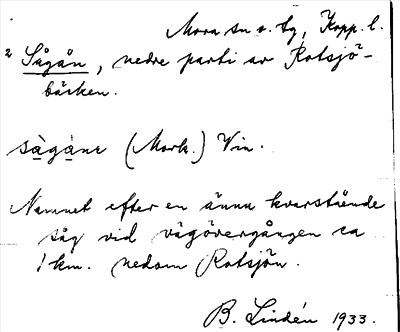 Mora sn o. tg, Kopp. l.
2 Sågån, nedre parti av Rotsjö-
bäcken.
sàgànẹ (Mork.) Vin.
Namnet efter en ännu kvarstående
såg vid vägövergången ca
1 km. nedom Rotsjön.
B. Lindén 1933.